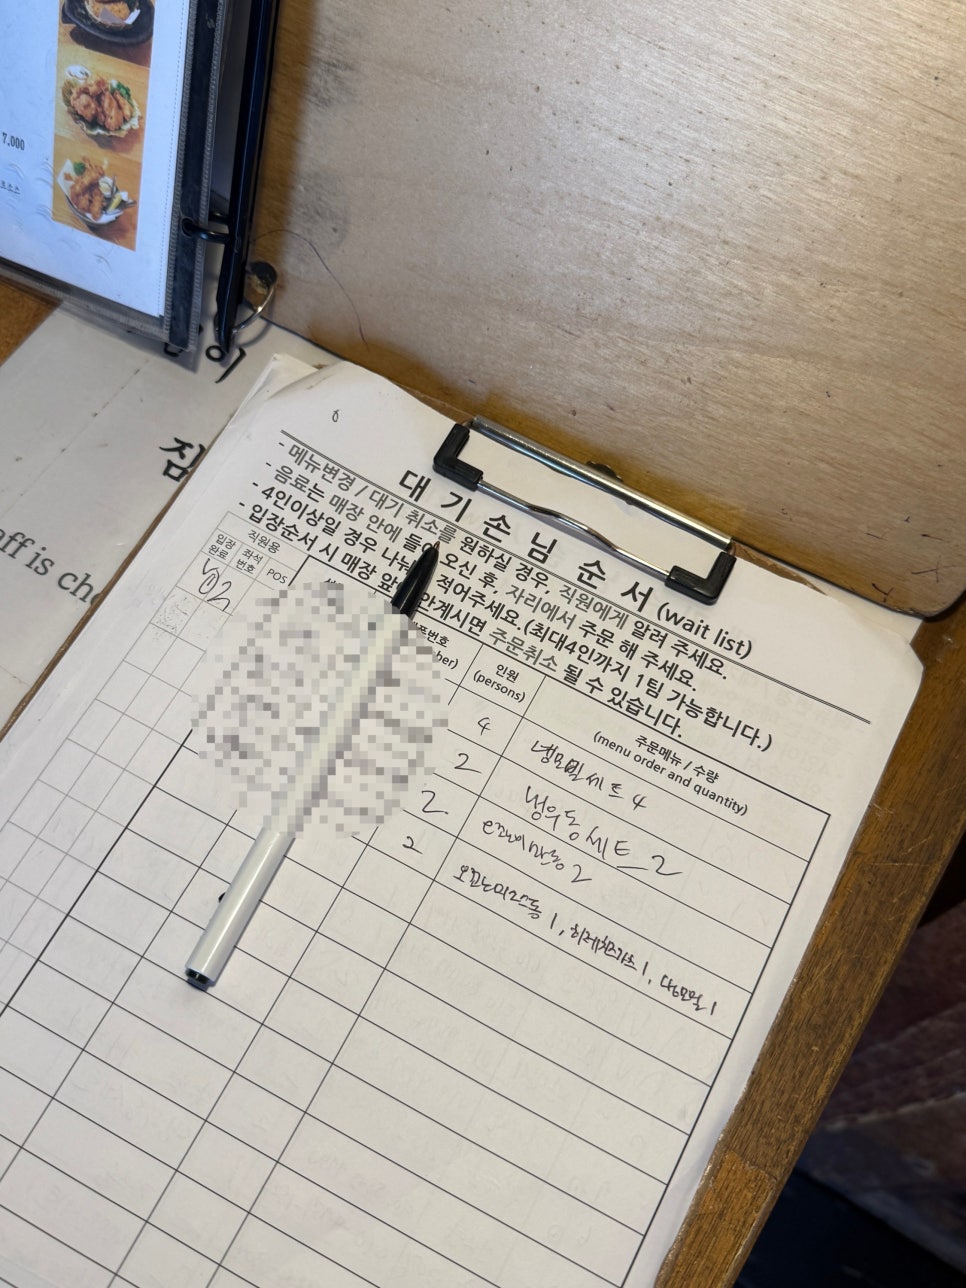 7,000
짐
aff is che
대 기 손 님 순 서 (wait list)
- 메뉴변경 / 대기 취소를 원하실 경우, 직원에게 알려 주세요.
- 음료는 매장 안에 들어오신 후, 자리에서 주문 해 주세요.
- 4인이상일 경우 나눠 적어주세요.(최대4인까지 1팀 가능합니다.)
- 입장순서 시 매장 앞 안계시면 주문취소 될 수 있습니다.
직원용
입장 완료
좌석 번호
POS
인원 (persons)
주문메뉴 / 수량 (menu order and quantity)
4 냉모밀세트 4
2 냉우동세트 2
2 2
2 1, 히레카츠 1, 냉모밀 1